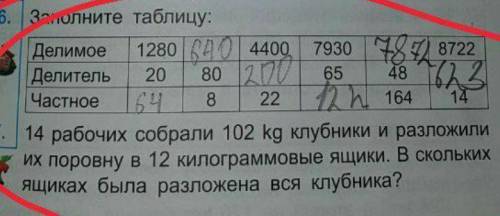 6. Заполните таблицу:
Делимое 1280 640 4400 7930 7872 8722
Делитель 20 80 200 65 48 623
Частное 64 8 22 122 164 14
14 рабочих собрали 102 kg клубники и разложили
их поровну в 12 килограммовые ящики. В скольких
ящиках была разложена вся клубника?